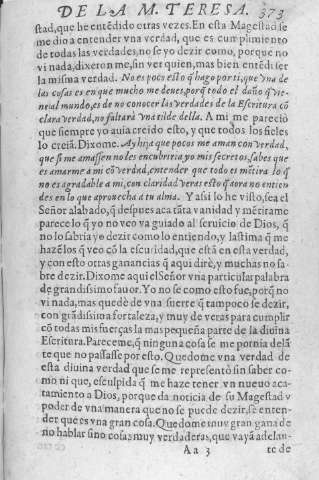 DE LA M. TERESA. 373
stad, que he entẽdido otras vezes. En esta Magestad se
me dio a entender vna verdad, que es cumplimiento
de todas las verdades, no se yo dezir como, porque no
vi nada, dixeron me, sin ver quien, mas bien entẽdi ser
la misma verdad. No es poco esto q̃ hago por ti, que vna de
las cosas es en que mucho me deues, porq̃ todo el daño q̃ vie-
ne al mundo, es de no conocer las verdades de la Escritura cõ
clara verdad, no faltarà vna tilde della. A mi me pareciò
que siempre yo auia creido esto, y que todos los fieles
lo creiã. Dixome. Ay hija que pocos me aman con verdad,
que si me amassen no les encubriria yo mis secretos, sabes que
es amarme a mi cõ verdad, entender que todo es mẽtira lo q̃
no es agradable a mi, con claridad veras esto q̃ aora no entien
des en lo que aprouecha a tu alma. Y assi lo he visto, sea el
Señor alabado, q̃ despues aca tãta vanidad y mẽtira me
parece lo q̃ yo no veo va guiado al seruicio de Dios, q̃
no lo sabria yo dezir como lo entiendo, y lastima q̃ me
hazẽ los q̃ veo cõ la escuridad, que està en esta verdad,
y con esto otras ganancias q̃ aqui dirè, y muchas no sa-
bre dezir. Dixome aqui el Señor vna particular palabra
de grandissimo fauor. Yo no se como esto fue, porq̃ no
vi nada, mas quedè de vna suerte q̃ tampoco se dezir,
con grãdissima fortaleza, y muy de veras para cumplir
cõ todas mis fuerças la mas pequeña parte de la diuina
Escritura. Pareceme, q̃ ninguna cosa se me pornia delã
te que no passasse por esto. Quedome vna verdad de
esta diuina verdad que se me representò sin saber co-
mo ni que, esculpida q̃ me haze tener vn nueuo aca-
tamiento a Dios, porque da noticia de su Magestad y
poder de vna manera que no se puede dezir, sè enten-
der que es vna gran cosa. Quedome muy gran gana de
no hablar sino cosas muy verdaderas, que vaya adelan-
Aa 3 te de